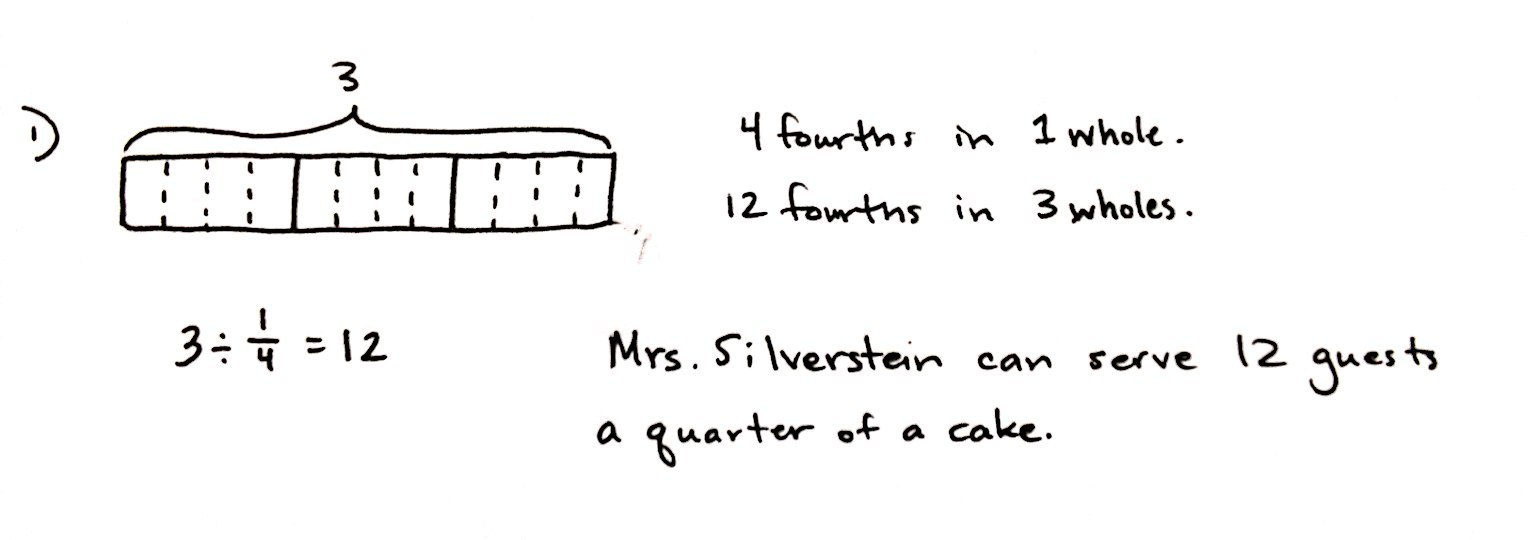 3
1)
4 fourths in 1 whole.
12 fourths in 3 wholes.
3 ÷ 1/4 = 12
Mrs. Silverstein can serve 12 guests
a quarter of a cake.